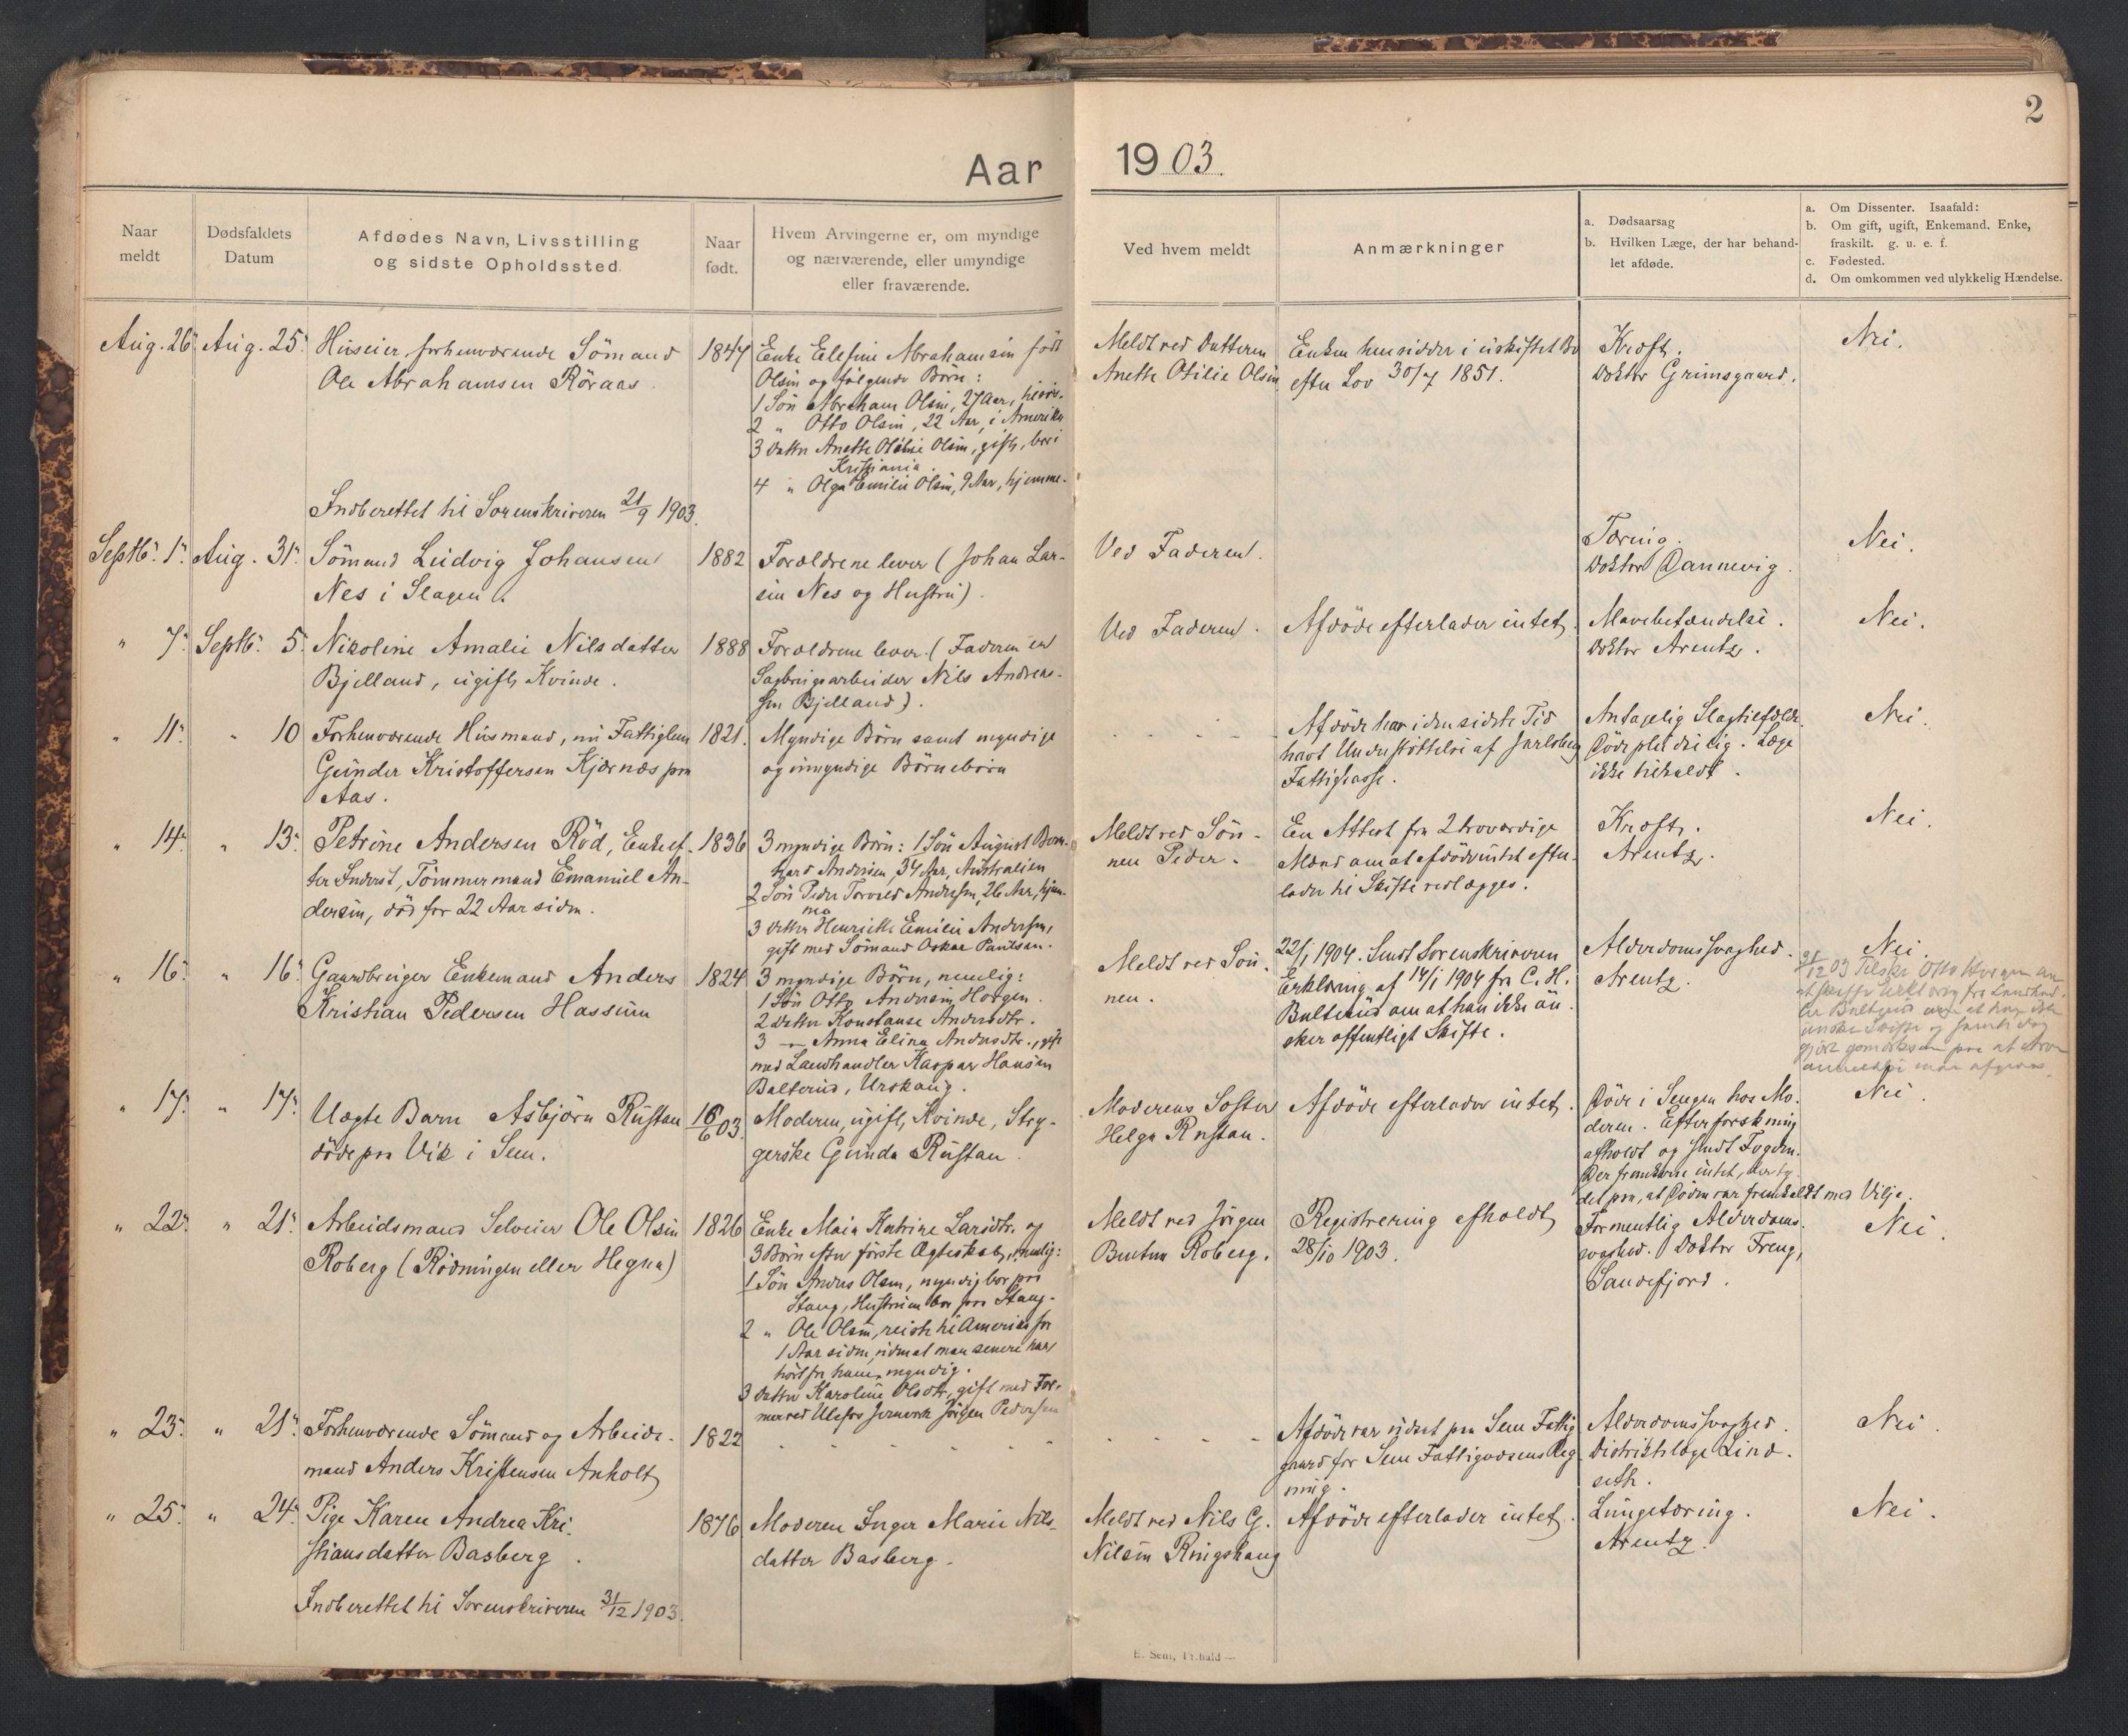 2
Aar 1903.
Naar
meldt
Dødsfaldets
Datum
Afdødes Navn, Livsstilling
og sidste Opholdssted
Naar
født.
Hvem Arvingerne er, om myndige
og nærværende, eller umyndige
eller fraværende.
Ved hvem meldt
Anmærkninger
a. Dødsaarsag
b. Hvilken Læge, der har behand-
let afdøde.
a. Om Dissenter. Isaafald:
b. Om gift, ugift, Enkemand. Enke,
fraskilt. g. u. e. f.
c. Fødested.
d. Om omkommen ved ulykkelig Hændelse.
Aug. 26. Aug. 25.
Huseier, forhenværende Sömand
Ole Abrahamsen Röraas.
1847
Enke Elefine Abrahamsen född
Olsen og følgende Börn:
1 Sön Abraham Olsen, 27 Aar,
2 " Otto Olsen, 22 Aar, i Amerika
3 Datter Anette Otilie Olsen, gift, bor i
Kristiania.
4 " Olga Emilie Olsen, 9 Aar, hjemme.
Meldt ved Datteren
Anette Otilie Olsen
Enken hensidder i uskiftet Bo
efter Lov 30/7 1851.
Kræft.
Doktor Grimsgaard.
Nei.
Indberettet til Sorenskriveren 21/9 1903.
Septb. 1. Aug. 31.
Sömand Ludvig Johansen
Nes i Slagen.
1882
Forældrene lever (Johan Lar-
sen Nes og Hustru).
Ved Faderen.
Tæring.
Doktor Dannevig.
Nei.
" 7. Septb. 5.
Nikoline Amalie Nilsdatter
Bjelland, ugift Kvinde.
1888
Forældrene lever. (Faderen er
Sagbrugsarbeider Nils Andreas-
sen Bjelland).
Ved Faderen.
Afdöde efterlader intet.
Mavebetændelse.
Doktor Arentz.
Nei.
" 11. " 10
Forhenværende Husmand, nu Fattiglem
Gunder Kristoffersen Kjærnæs paa
Aas.
1821.
Myndige Börn samt myndige
og umyndige Börnebörn
- - - -
Afdöde har i den sidste Tid
havt Understöttelse af Jarlsberg
Fattigkasse.
Antagelig Slagtilfælde.
Döde pludselig. Læge
ikke tilkaldt.
Nei.
" 14. " 13.
Petrine Andersen Röd, Enke ef-
ter Inderst, Tömmermand Emanuel An-
dersen, död for 22 Aar siden.
1836
3 myndige Börn: 1 Sön August Bern-
hard Andersen, 34 Aar, Australien
2 Sön Peder Andersen, 26 Aar, hjem-
me
3 Datter Henriette Emilie Andersen,
gift med Sömand Oskar Paulsen.
Meldt ved Sön-
nen Peder.
En Attest fra 2 troværdige
Mænd om at afdöde intet efter-
lader til Skifte vedlægges.
Kræft.
Arentz.
Nei.
" 16. " 16.
Gaardbruger Enkemand Anders
Kristian Pedersen Hassum
1824
3 myndige Börn, nemlig:
1 Sön Otto Andersen Horgen.
2 Datter Konstanse Andersdtr.
3 — Anna Elina Andersdtr., gift
med Landhandler Kaspar Hansen
Bulterud, Urskaug.
Meldt ved Sön-
nen.
22/1 1904. Sendt Sorenskriveren
Erklæring af 14/1 1904 fra C. H.
Bulterud om at han ikke ön-
sker offentligt Skifte.
Alderdomssvaghed.
Arentz.
Nei.
21/12 03 Tilskr. Otto Horgen om
at skaffe Erklæring fra Landhand-
ler Bulterud om at han ikke
önsker Skifte og
" 17. " 17.
Uægte Barn Asbjörn Rustan
döde paa Vik i Sem.
16/6 03.
Moderen, ugift, Kvinde, Stry-
gerske Gunda Rustan.
Moderens Söster
Helga Rustan.
Afdöde efterlader intet.
Döde i Sengen hos Mo-
deren. Efterforskning
afholdt og sendt Fogden.
Der fremkom intet, der ty-
det paa, at Döden var fremkaldt med Vilje.
Nei.
" 22. " 21.
Arbeidsmand Selveier Ole Olsen
Roberg (Rödningen eller Hegna)
1826
Enke Maia Katrine Larsdtr. og
3 Börn efter förste Ægteskab, nemlig:
1 Sön Anders Olsen, myndig bor paa
Stang, Hustruen bor paa Stang.
2 " Ole Olsen, reiste til Amerika for
1 Aar siden, uden at man senere har
hört fra ham, myndig.
3 Datter Karoline Olsdtr., gift med For-
mer ved Ulefos Jernverk Jörgen Pedersen
Meldt ved Jörgen
Roberg.
Registrering afholdt
28/10 1903.
Formentlig Alderdoms-
svaghed. Doktor Freng,
Sandefjord.
Nei.
" 23. " 21.
Forhenværende Sömand og Arbeids-
mand Anders Kristensen Anholt
1822
- - - -
- - - -
Afdöde var sidst paa Sem Fattig
gaard for Sem Fattigvæsens Reg-
ning.
Alderdomssvaghed.
Distriktslæge Lind-
seth.
Nei.
" 25. " 24.
Pige Karen Andrea Kri-
stiansdatter Basberg.
1876
Moderen Inger Marie Nils-
datter Basberg.
Meldt ved Nils G.
Nilsen Ringshaug
Afdöde efterlader intet.
Lungetæring.
Arentz.
Nei.
Indberettet til Sorenskriveren 31/12 1903.
E. Sem, Fr.hald —